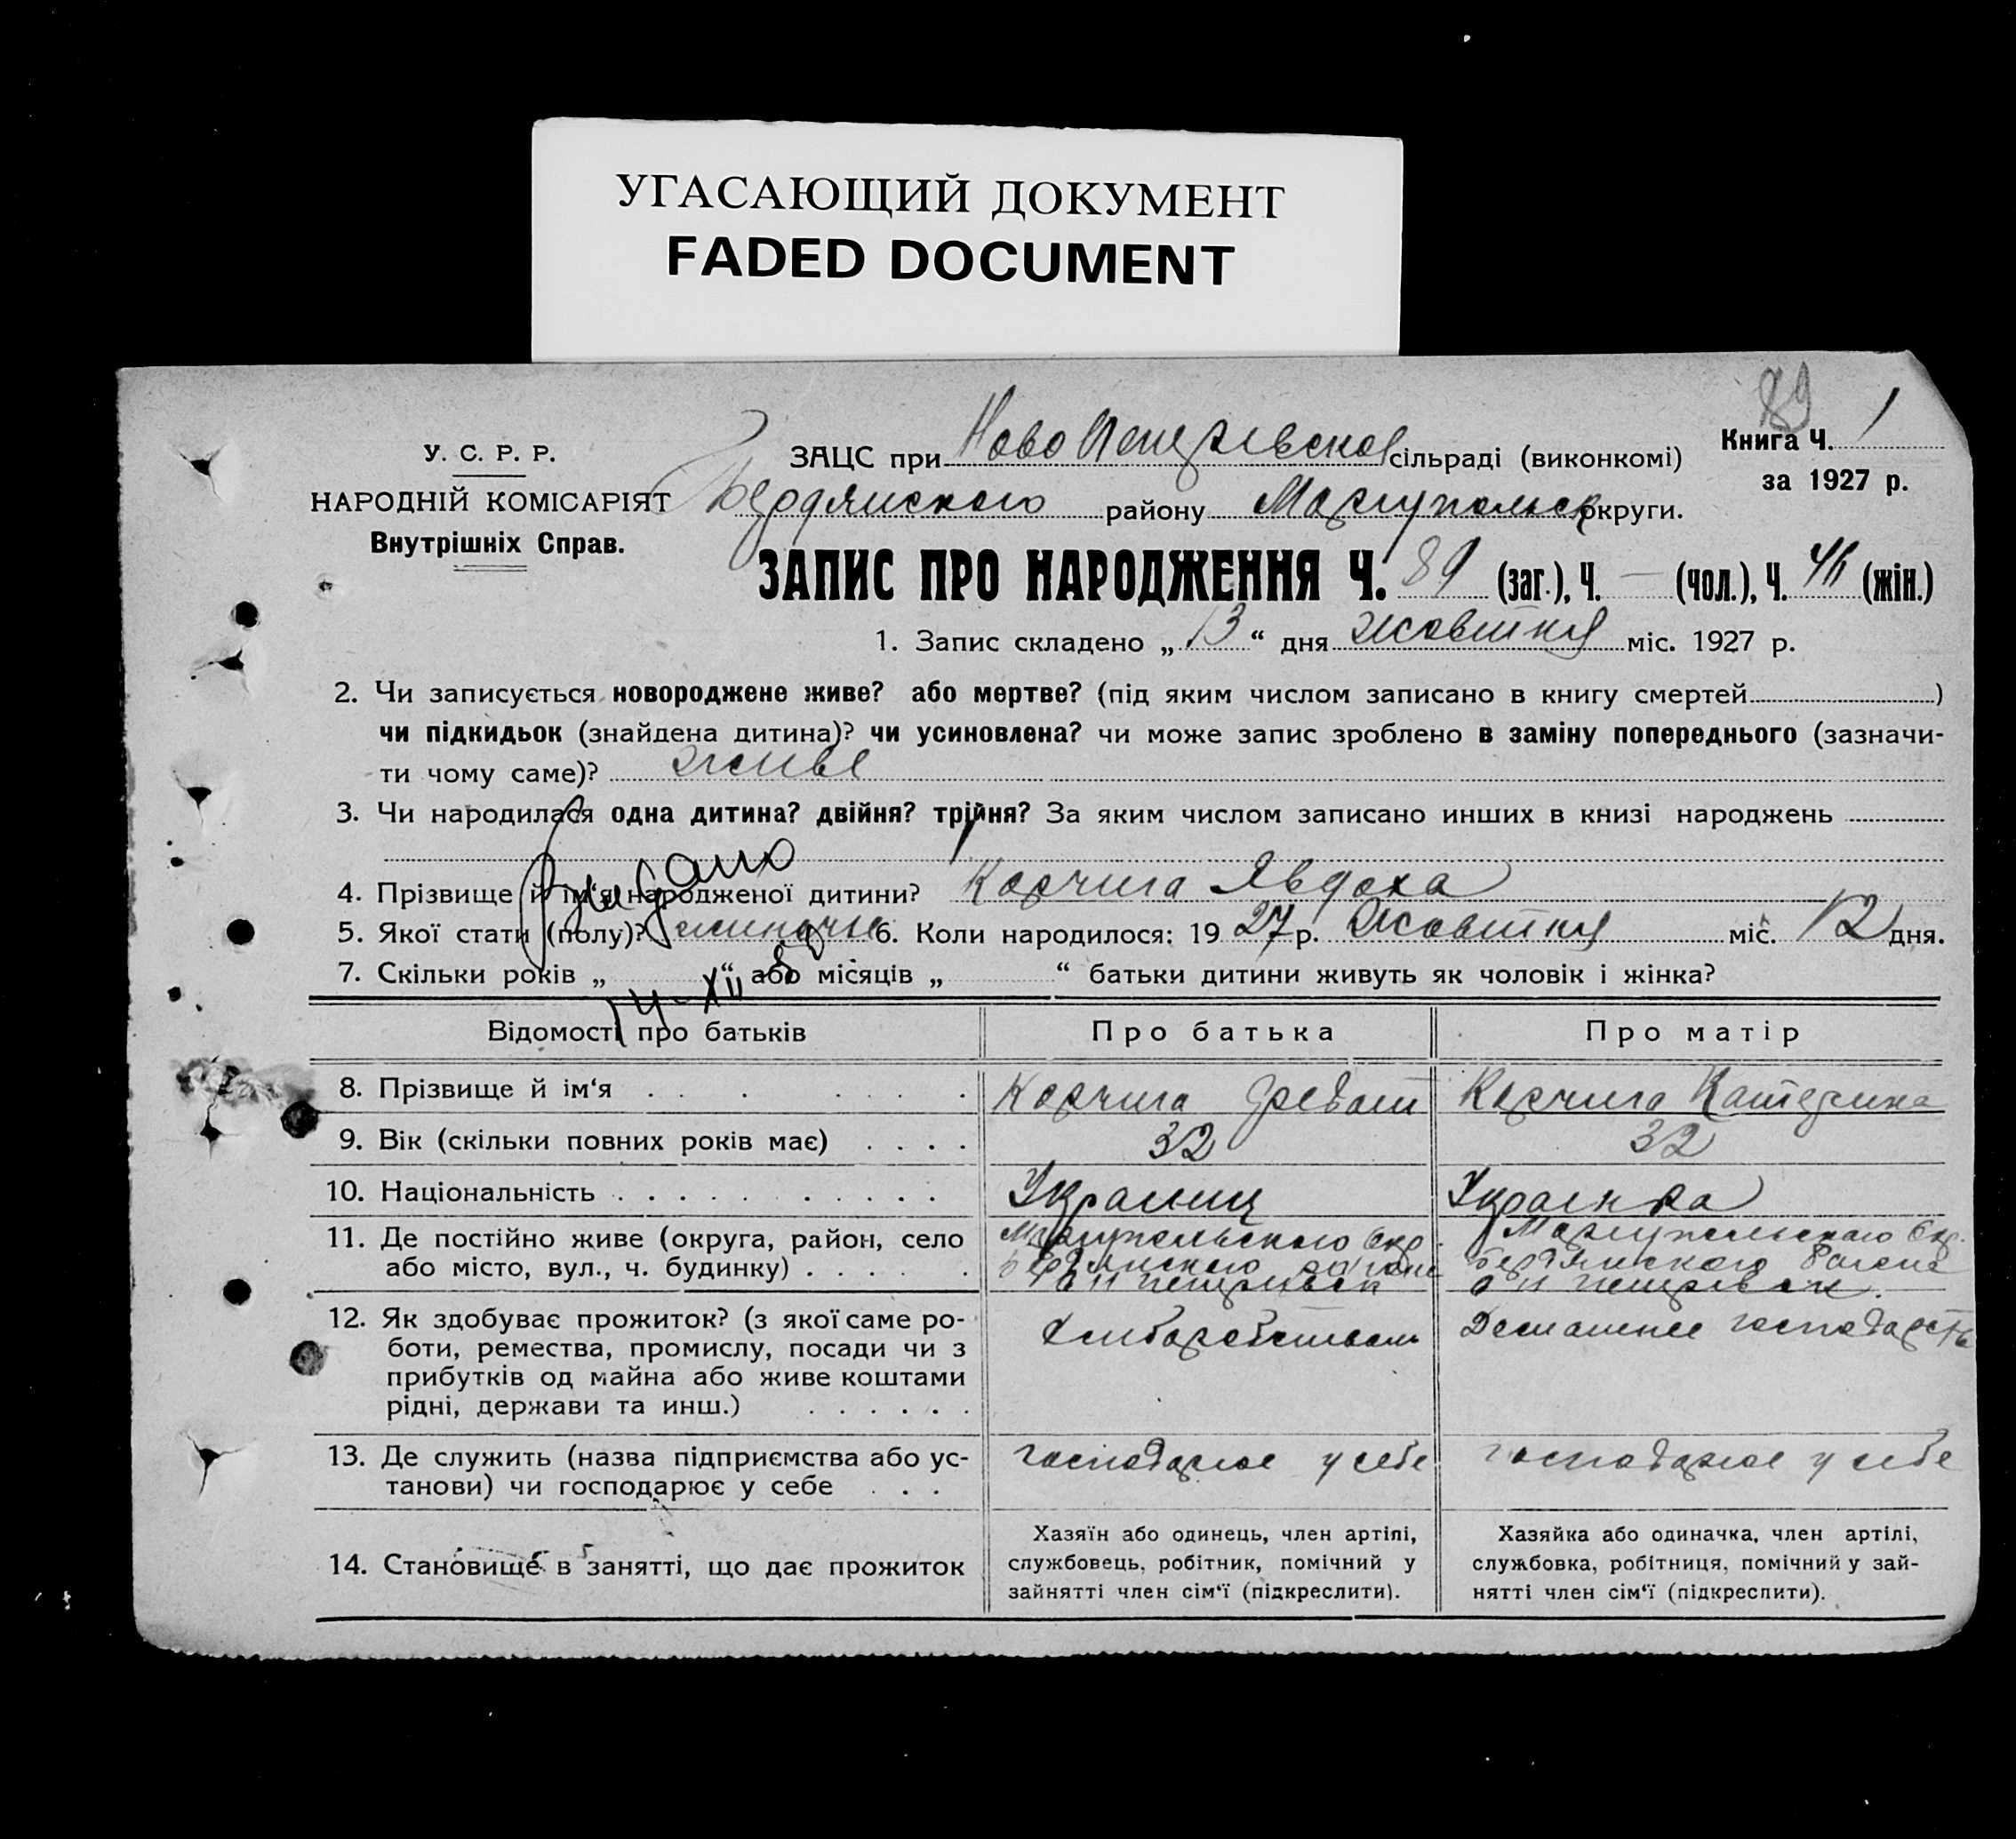 УГАСАЮЩИЙ ДОКУМЕНТ
FADED DOCUMENT
89
У. С. Р. Р.
НАРОДНІЙ КОМІСАРІЯТ
Внутрішніх Справ.
ЗАЦС при Ново Петрівској сільраді (виконкомі)
Книга Ч. 1
за 1927 р.
Бердянского району Маріупольск округи.
ЗАПИС ПРО НАРОДЖЕННЯ Ч. 89 (заг.), Ч. — (чол.), Ч. 46 (жін.)
1. Запис складено „ 13 “ дня жовтня міс. 1927 р.
2. Чи записується новороджене живе? або мертве? (під яким числом записано в книгу смертей )
чи підкидьок (знайдена дитина)? чи усиновлена? чи може запис зроблено в заміну попереднього (зазначи-
ти чому саме)? живе
3. Чи народилася одна дитина? двійня? трійня? За яким числом записано инших в книзі народжень
4. Прізвище й ім‘я народженої дитини? Корчига Явдоха
5. Якої стати (полу)? жиноче 6. Коли народилося: 1927 р. Жовтня міс. 12 дня.
7. Скільки років „ “ або місяців „ “ батьки дитини живуть як чоловік і жінка?
14-XII
Відомості про батьків Про батька Про матір
8. Прізвище й ім‘я Корчига Корчига Катерина
9. Вік (скільки повних років має) 32 32
10. Національність Украинц Украінка
11. Де постійно живе (округа, район, село Маріупольского Окр. Маріупольского Окр.
або місто, вул., ч. будинку) Бердянского района Бердянского Раиона
12. Як здобуває прожиток? (з якої саме ро- Хлиборобством Домашнее господарств
боти, ремества, промислу, посади чи з
прибутків од майна або живе коштами
рідні, держави та инш.)
13. Де служить (назва підприємства або ус- господарює у себе господарює у себе
танови) чи господарює у себе
14. Становище в занятті, що дає прожиток
Хазяїн або одинець, член артілі,
службовець, робітник, помічний у
зайнятті член сім‘ї (підкреслити).
Хазяйка або одиначка, член артілі,
службовка, робітниця, помічний у зай-
нятті член сім‘ї (підкреслити).